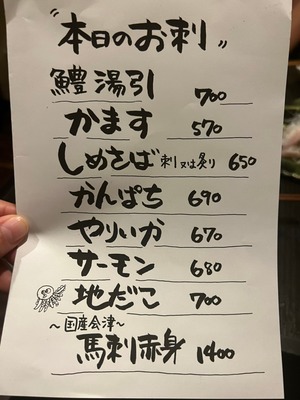 〃本日のお刺〃
鱧湯引 700
かます 570
しめさば 刺又は炙り 650
かんぱち 690
やりいか 670
サーモン 680
地だこ 700
〜国産会津〜
馬刺赤身 1400